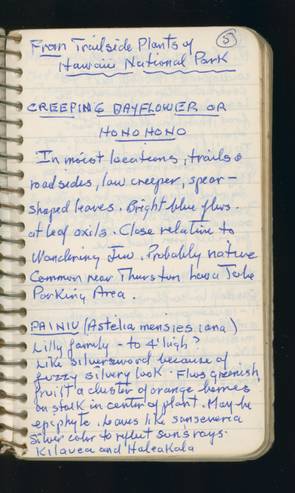 From Trailside Plants of
Hawaii National Park
5
CREEPING DAYFLOWER OR
HONOHONO
In moist locations, trails &
roadsides, low creeper, spear-
shaped leaves. Bright blue flws.
at leaf axils. Close relative to
Wandering Jew. Probably native
Common near Thurston Lava Tube
Parking Area.
PAINIU (Astelia menziesiana)
Lilly family - to 4' high?
Like silversword because of
fuzzy silvery look. Flws greenish,
fruit a cluster of orange berries
on stalk in center of plant. May be
epiphyte. Leaves like sanseveria
Silver color to reflect sun's rays.
Kilauea and Haleakala